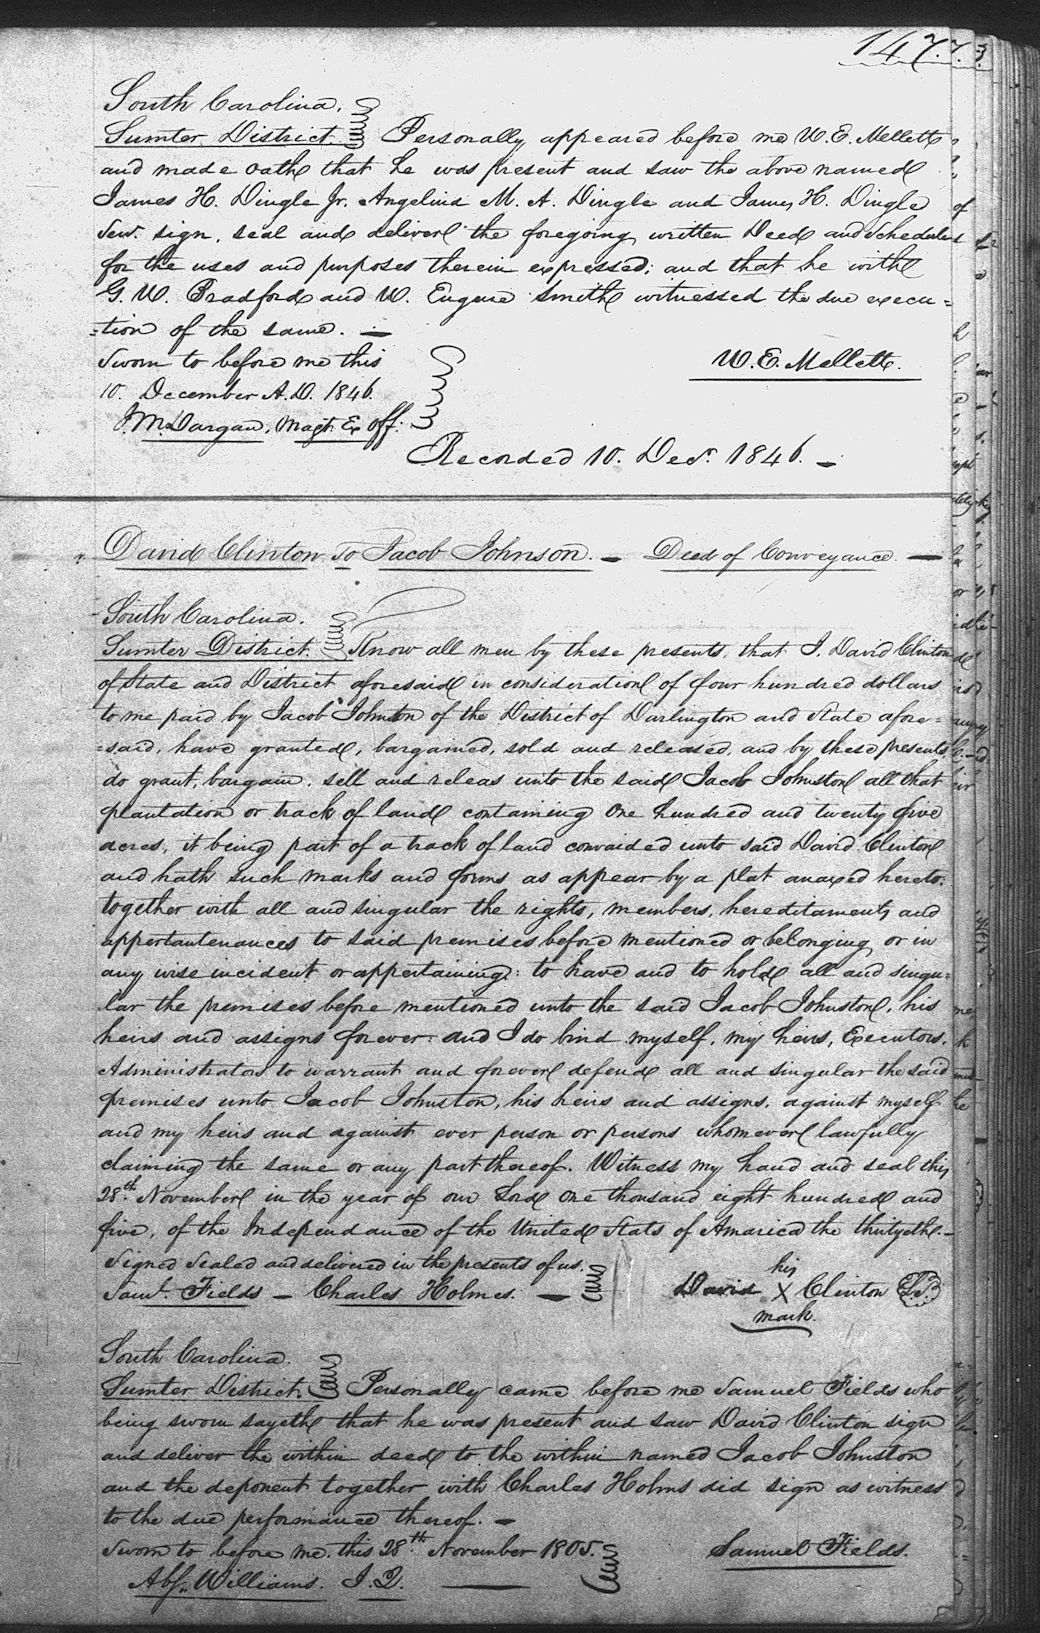 147.
South Carolina.
Sumter District. Personally appeared before me W. E. Mellett
and made oath that he was present and saw the above named
James H. Dingle Jr. Angelina M. A. Dingle and James H. Dingle
Senr. sign, seal and deliver the foregoing written Deed and Schedule
for the uses and purposes therein expressed; and that he with
G. W. Bradford and W. Eugene Smith witnessed the due execu=
=tion of the same. —
Sworn to before me this
W. E. Mellett.
10. December A.D. 1846.
J. McDargan, Magt. Ex off:
Recorded 10. Decr. 1846. —
David Clinton to Jacob Johnson. — Deed of Conveyance. —
South Carolina.
Sumter District. Know all men by these presents, that I. David Clinton
of State and District aforesaid in consideration of four hundred dollars
to me paid by Jacob Johnston of the District of Darlington and State afore=
=said, have granted, bargained, sold and released, and by these presents
do grant, bargain, sell and releas unto the said Jacob Johnston all that
plantation or track of land containing One hundred and twenty five
acres, it being part of a track of land convaided unto said David Clinton
and hath such marks and forms as appear by a plat anaxed hereto.
together with all and singular the rights, members, hereditaments and
appertantenances to said premises before mentioned or belonging or in
any wise incident or appertaining: to have and to hold all and singu=
lar the premises before mentioned unto the said Jacob Johnston, his
heirs and assigns forever: and I do bind myself, my heirs, Executors,
Administrators to warrant and forever defend all and singular the said
premises unto Jacob Johnston, his heirs and assigns, against myself
and my heirs and against ever person or persons whomever lawfully
claiming the same or any part thereof. Witness my hand and seal this
28th November in the year of our Lord One thousand eight hundred and
five, of the Independance of the United Stats of Amarica the thirtyeth. —
Signed Sealed and delivered in the presents of us.
Saml. Fields — Charles Holmes. —
David his X mark. Clinton L.S.
South Carolina.
Sumter District. Personally came before me Samuel Fields who
being sworn sayeth that he was present and saw David Clinton sign
and deliver the within deed to the within named Jacob Johnston
and the deponent together with Charles Holms did sign as witness
to the due performance thereof. —
Sworn to before me this 28th November 1805.
Samuel Fields.
Abs. Williams. J. Q. —